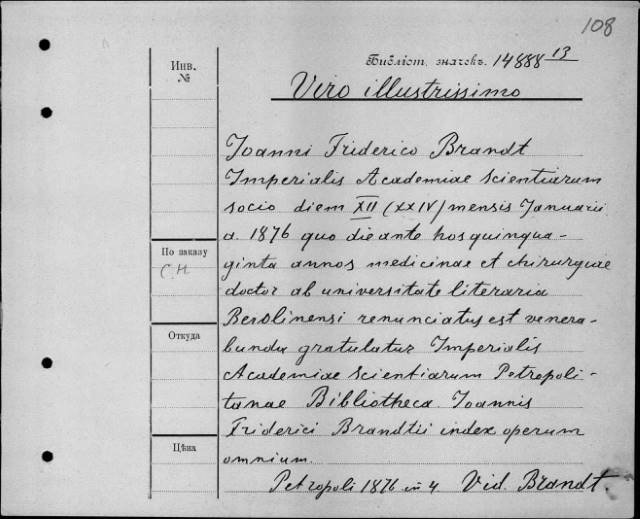 108
Библіот. значекъ. 14888 13
Инв.
№
Viro illustrissimo
Joanni Friderico Brandt
Imperialis Academiae scientiarum
socio diem XII (XXIV) mensis Januarii
a. 1876 quo die ante hos quinqua-
ginta annos medicinae et chirurgiae
doctor ab universitate literaria
Berolinensi renunciatus est venera-
bunda gratulatur Imperialis
Academiae scientiarum Petropoli-
tanae Bibliotheca. Joannis
Friderici Brandtii index operum
omnium.
Petropoli 1876 in 4. Vid. Brandt.
По заказу
СН
Откуда
Цѣна